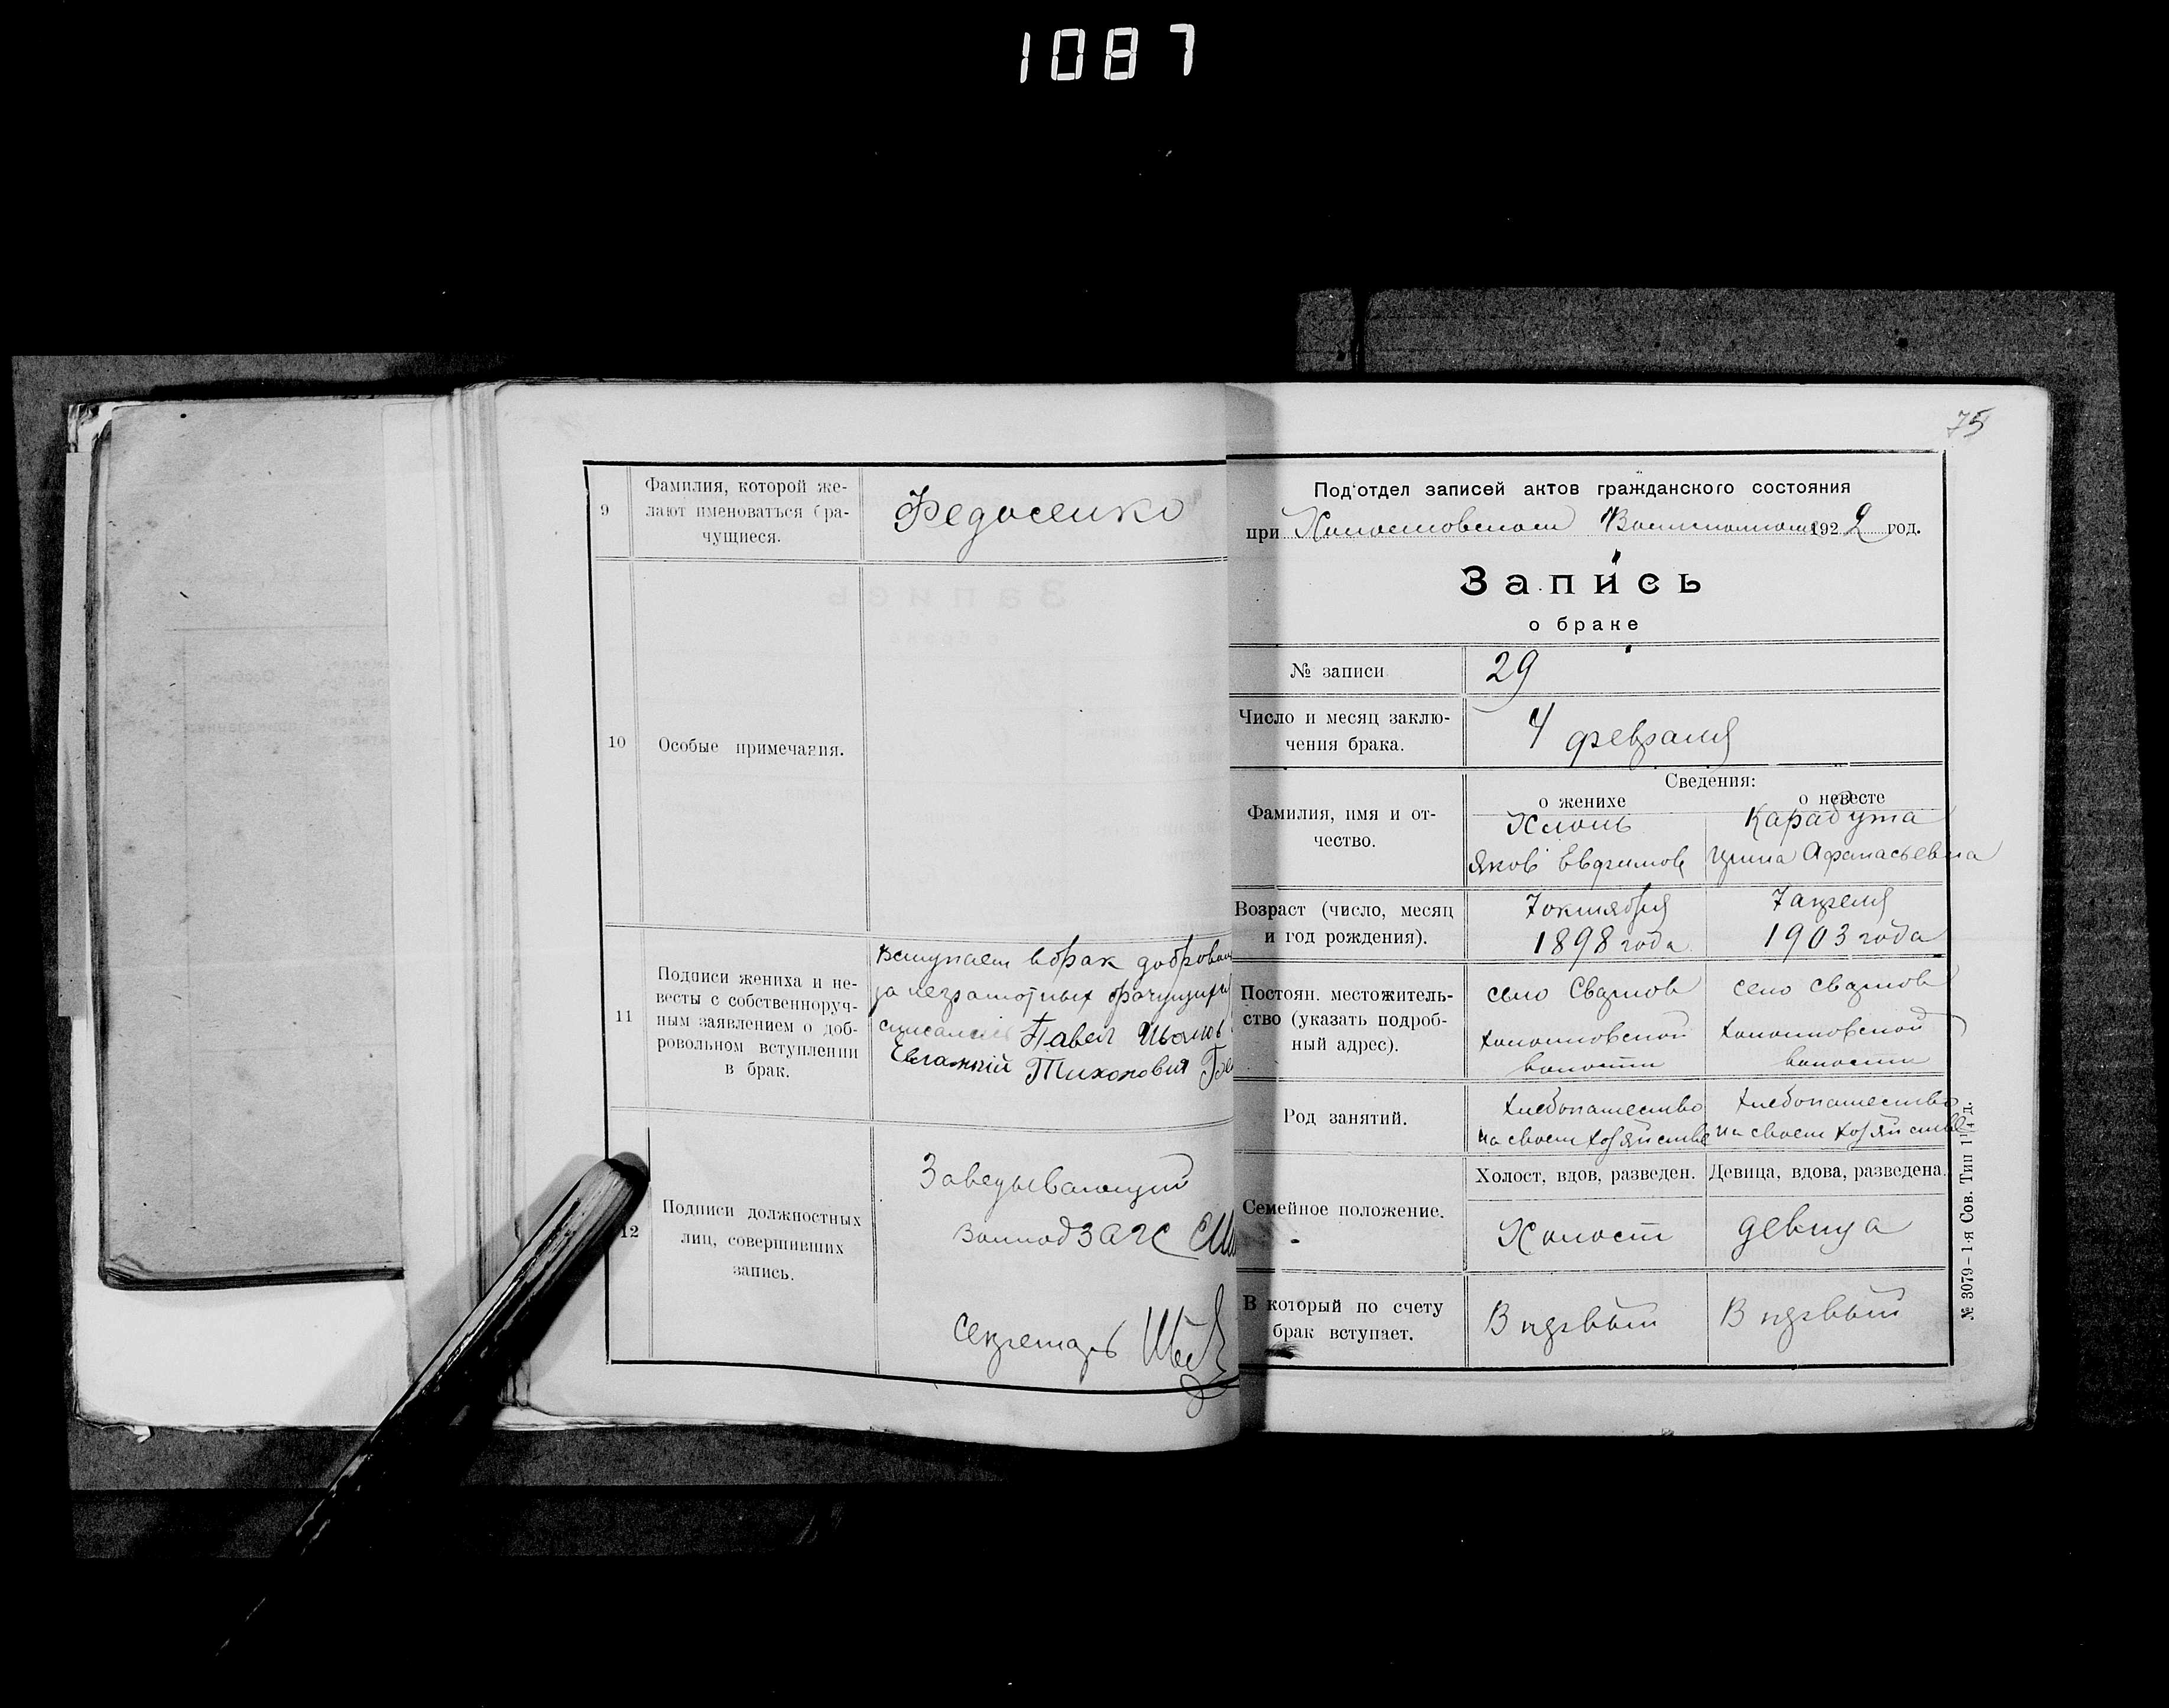 1087
9
Фамилия, которой же-
лают именоваться бра-
чущиеся.
Федосенко
10
Особые примечания.
11
Подписи жениха и не-
весты с собственноруч-
ным заявлением о доб-
ровольном вступлении
в брак.
вступаем в брак доброволь
за неграмотных брачущихся
Павел
Тихонович
12
Подписи должностных
лиц, совершивших
запись.
Заведывающий
ЗАГС
Секретарь
75
Подотдел записей актов гражданского состояния
при 1922 год.
Запись
о браке
№ записи
29
Число и месяц заклю-
чения брака.
4 февраля
Сведения:
о женихе
о невесте
Фамилия, имя и от-
чество.
Хлонь
Яков Евфимов
Карабута
Ирина Афанасьевна
Возраст (число, месяц
и год рождения).
7 октября
1898 года
7 апреля
1903 года
Постоян. местожитель-
ство (указать подроб-
ный адрес).
село
волости
село
волости
Род занятий.
хлебопашество
на своем хозяйстве
хлебопашество
на своем хозяйстве
Семейное положение.
Холост, вдов, разведен.
Девица, вдова, разведена.
Холост
девица
В который по счету
брак вступает.
В первый
В первый
№ 3079-1-я Сов. Тип 1¼ д.